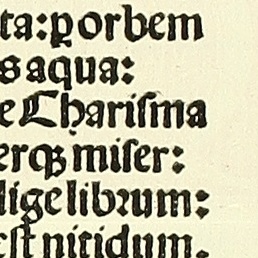 ta: ꝑ orbem
s aqua:
e Chariſma
erqꝫ miſer:
lige librum:
eſt nitidum.